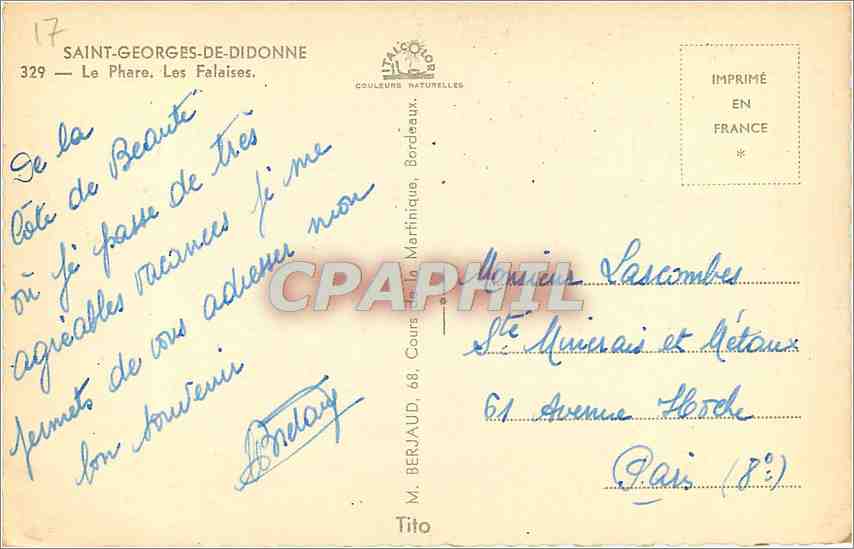 17
SAINT-GEORGES-DE-DIDONNE
329 — Le Phare. Les Falaises.
ITALCOLOR
COULEURS NATURELLES
IMPRIMÉ
EN
FRANCE
*
De la
Côte de Beauté
où je passe de très
agréables vacances je me
permets de vous adresser mon
bon souvenir
M. BERJAUD, 68, Cours de la Martinique, Bordeaux.
CPAPHIL
Monsieur Lascombes
Sté Minerais et Métaux
61 Avenue Hoche
Paris (8e)
Tito